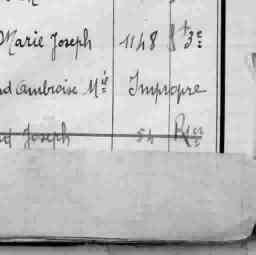 Marie Joseph 1148 3e
nd Ambroise Mie Impropre
Joseph 54